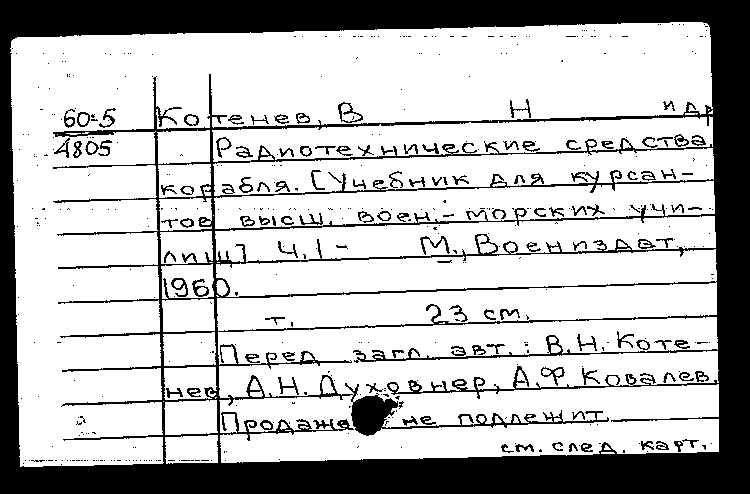 60-5 Котенев, В Н и др
4805 Радиотехнические средства
корабля. [Учебник для курсан-
тов высш. воен.-морских учи-
лищ] Ч.1- М., Воениздат,
1960.
т. 23 см.
Перед загл. авт.: В.Н. Коте-
нев, А.Н. Духовнер, А.Ф. Ковалев.
Продаже не подлежит.
см. след. карт.